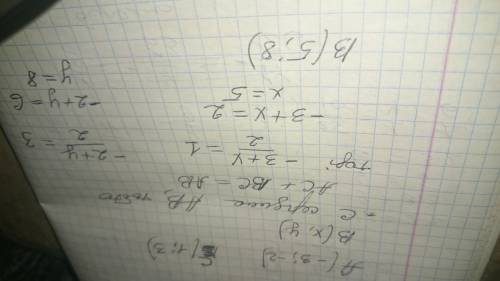 A(-3;-2) C(1;3)
B(x,y)
- C середина AB, тогда
AC + BC = AB
тор.
-3+x/2 = 1 -2+y/2 = 3
-3+x=2 -2+y=6
x=5 y=8
B(5;8)